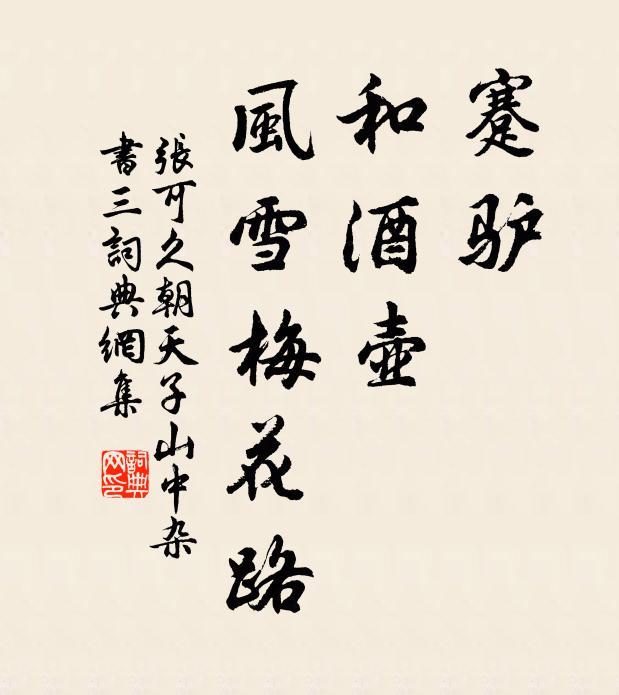 蹇驴
和酒壺
風雪梅花路
張可久朝天子山中杂
書三詞典網集
詞典
网印